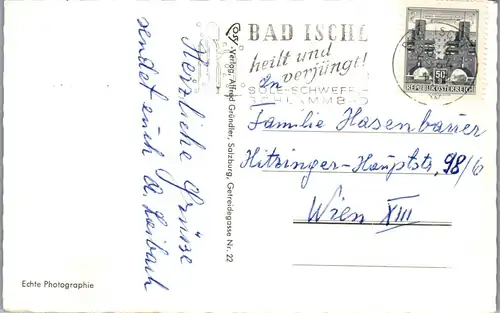 Herzliche Grüsse
sendet euch A. Leibach
Cosy-Verlag, Alfred Gründler, Salzburg, Getreidegasse Nr. 22
BAD ISCHL
heilt und
verjüngt!
SOLE-SCHWEFEL-
SCHLAMMBAD
REPUBLIK ÖSTERREICH
50 g
An
Familie Hasenbauer
Hitzinger-Hauptstr. 98/6
Wien XIII
Echte Photographie